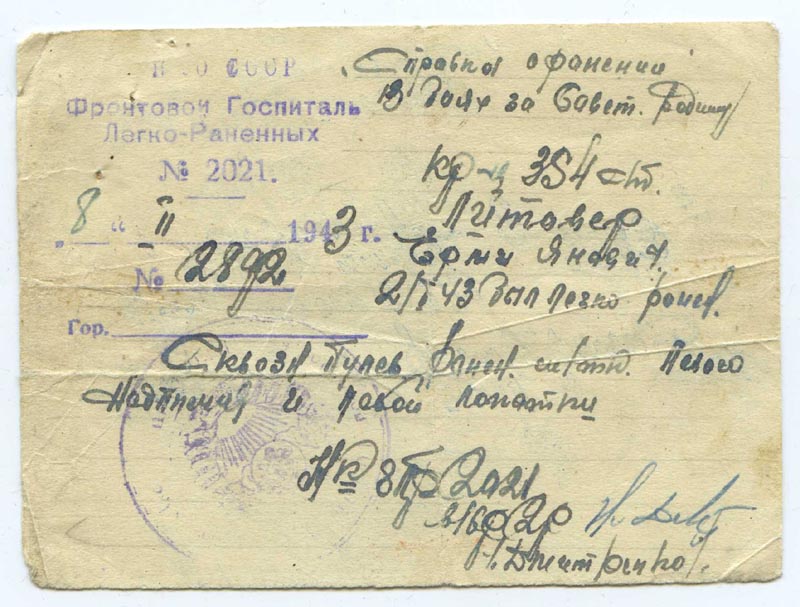 Н О СССР
Фронтовой Госпиталь
Легко-Раненных
№ 2021.
„8“ II 1943 г.
№ 2892
Гор.
Справка о ранении
в боях за Совет. Родину
кр-ц 354 сп.
Литовер
Ерми Янович,
2/I 43 был легко ранен.
Сквозн пулев ранен. левого
надплечия и левой лопатки
2021
Дмитренко